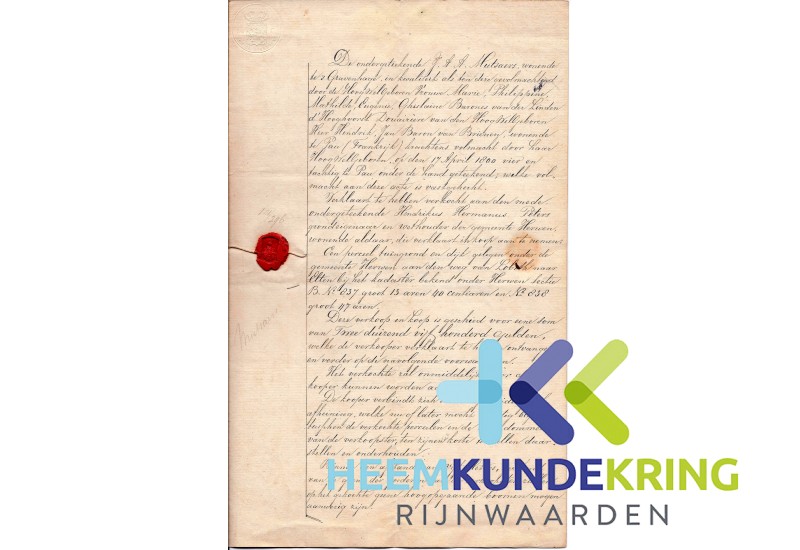 De ondergeteekende J. A. A. Mutsaers, wonende
te 's Gravenhage, en kwaliteit als ten deze gevolmachtigd
door de HoogWelGeboren Vrouwe Marie, Philippine,
Mathilde, Eugénie, Ghislaine Barones van der Linden
d'Hooghvorst Douairière van den HoogWelGeboren
Heer Hendrik, Jan Baron van , wonende
te Pau (Frankrijk) krachtens volmacht door haar
HoogWelGeboren, op den 17 April 1800 vier en
tachtig te Pau onder de hand geteekend, welke vol-
macht aan deze acte is vastgehecht.
Verklaart te hebben verkocht aan den mede
ondergeteekende Hendrikus Hermanus Peters
grondeigenaar en wethouder der gemeente Herwen
wonende aldaar, die verklaart in koop aan te nemen:
Een perceel tuingrond en dijk gelegen onder de
gemeente Herwen aan den weg van Lobith naar
Elten bij het kadaster bekend onder Herwen Sectie
B. No. 837 groot 13 aren 40 centiaren en No. 838
groot 47 aren.
Deze verkoop en koop is geschied voor eene som
van Twee duizend vijf honderd gulden,
welke de verkooper verklaart te ontvangen
en verder op de navolgende voorwaarden.
Het verkochte zal onmiddelijk
kooper kunnen worden
De kooper verbindt zich
afpaling, welke nu of later mocht
tusschen de verkochte perceelen en de
van de verkoopster, ten zijnen koste te stellen daar
stellen en onderhouden.
van
op het gekochte geene hoogopgaande boomen mogen
aanwezig zijn.
HEEMKUNDEKRING
RIJNWAARDEN